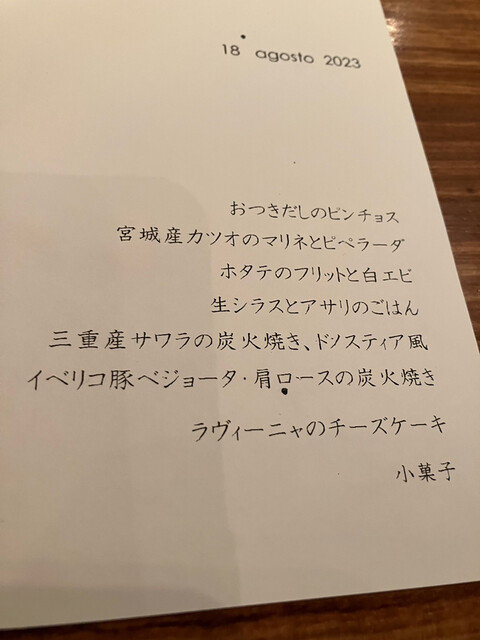 18 agosto 2023
おつきだしのピンチョス
宮城産カツオのマリネとピペラーダ
ホタテのフリットと白エビ
生シラスとアサリのごはん
三重産サワラの炭火焼き、ドノスティア風
イベリコ豚ベジョータ・肩ロースの炭火焼き
ラヴィーニャのチーズケーキ
小菓子